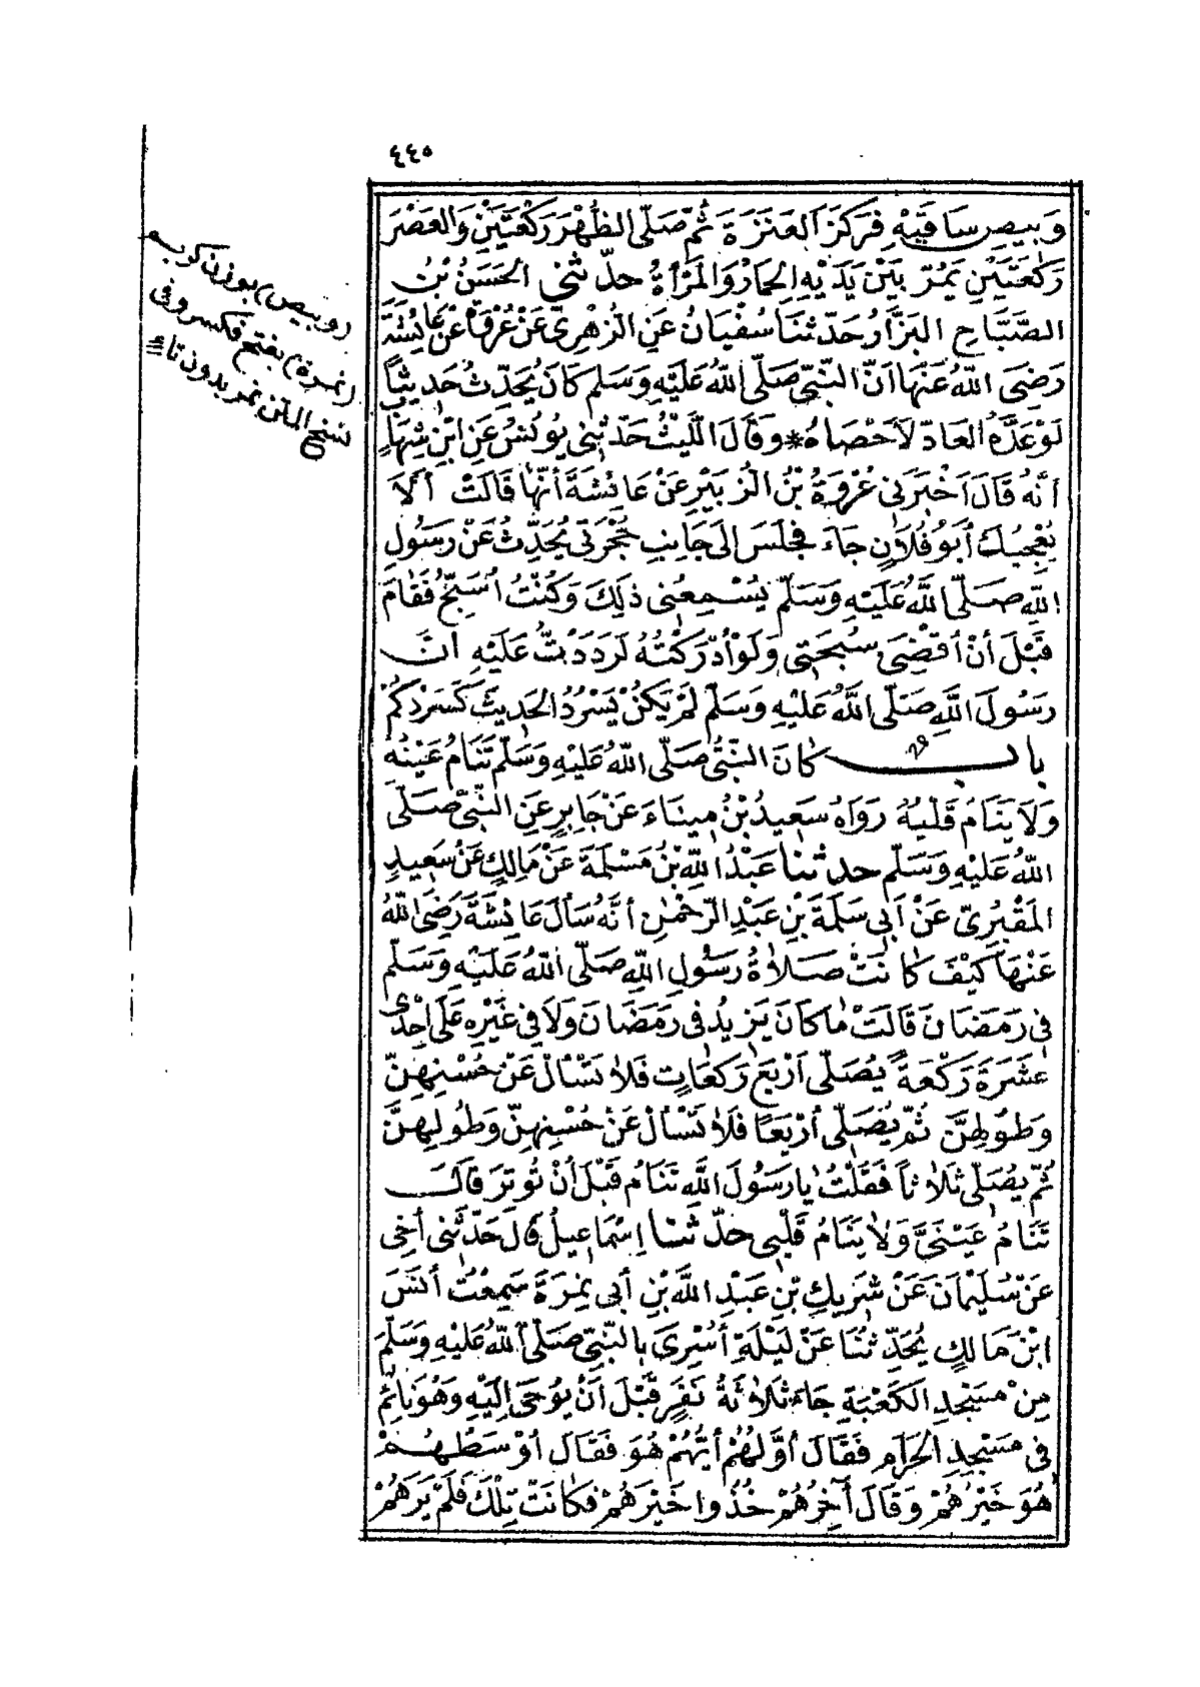 ٤٤٥
وَبِيصِ سَاقَيْهِ فَرَكَزَ العَنَزَةَ ثُمَّ صَلَّى الظُّهْرَ رَكْعَتَيْنِ وَالعَصْرَ
رَكْعَتَيْنِ يَمُرُّ بَيْنَ يَدَيْهِ الحِمَارُ وَالمَرْأَةُ حدّثنى الحَسَنُ بْنُ
الصَّبَّاحِ البَزَّارُ حَدَّثَنَا سُفْيَانُ عَنِ الزُّهْرِىِّ عَنْ عُرْوَةَ عَنْ عَائِشَةَ
رَضِىَ اللَّهُ عَنْهَا أَنَّ النَّبِىَّ صَلَّى اللَّهُ عَلَيْهِ وَسَلَّم كَانَ يُحَدِّثُ حَدِيثاً
لَوْ عَدَّهُ العَادُّ لَأَحْصَاهُ * وَقَالَ اللَّيْثُ حَدَّثَنِى يُونُسُ عَنِ ابْنِ شِهَابٍ
أَنَّهُ قَالَ أَخْبَرَنِى عُرْوَةُ بْنُ الزُّبَيْرِ عَنْ عَائِشَةَ أَنَّهَا قَالَتْ أَلَا
يُعْجِبُكَ أَبُو فُلَانٍ جَاءَ فَجَلَسَ إِلَى جَانِبِ حُجْرَتِى يُحَدِّثُ عَنْ رَسُولِ
اللَّهِ صَلَّى اللَّهُ عَلَيْهِ وَسَلَّمَ يُسْمِعُنِى ذَلِكَ وَكُنْتُ أُسَبِّحُ فَقَامَ
قَبْلَ أَنْ أَقْضِىَ سُبْحَتِى وَلَوْ أَدْرَكْتُهُ لَرَدَدْتُ عَلَيْهِ أَنَّ
رَسُولَ اللَّهِ صَلَّى اللَّهُ عَلَيْهِ وَسَلَّمَ لَمْ يَكُنْ يَسْرُدُ الحَدِيثَ كَسَرْدِكُمْ
باب كَانَ النَّبِىُّ صَلَّى اللَّهُ عَلَيْهِ وَسَلَّمَ تَنَامُ عَيْنُهُ
وَلَا يَنَامُ قَلْبُهُ رَوَاهُ سَعِيدُ بْنُ مِينَاءَ عَنْ جَابِرٍ عَنِ النَّبِىِّ صَلَّى
اللَّهُ عَلَيْهِ وَسَلَّمَ حدثنا عَبْدُ اللَّهِ بْنُ مَسْلَمَةَ عَنْ مَالِكٍ عَنْ سَعِيدٍ
المَقْبُرِىِّ عَنْ أَبِى سَلَمَةَ بْنِ عَبْدِ الرَّحْمَنِ أَنَّهُ سَأَلَ عَائِشَةَ رَضِىَ اللَّهُ
عَنْهَا كَيْفَ كَانَتْ صَلَاةُ رَسُولِ اللَّهِ صَلَّى اللَّهُ عَلَيْهِ وَسَلَّمَ
فِى رَمَضَانَ قَالَتْ مَا كَانَ يَزِيدُ فِى رَمَضَانَ وَلَا فِى غَيْرِهِ عَلَى إِحْدَى
عَشْرَةَ رَكْعَةً يُصَلِّى أَرْبَعَ رَكَعَاتٍ فَلَا تَسْأَلْ عَنْ حُسْنِهِنَّ
وَطُولِهِنَّ ثُمَّ يُصَلِّى أَرْبَعًا فَلَا تَسْأَلْ عَنْ حُسْنِهِنَّ وَطُولِهِنَّ
ثُمَّ يُصَلِّى ثَلَاثاً فَقُلْتُ يَا رَسُولَ اللَّهِ تَنَامُ قَبْلَ أَنْ تُوتِرَ قَالَ
تَنَامُ عَيْنِى وَلَا يَنَامُ قَلْبِى حدّثنا إِسْمَاعِيلُ قَالَ حَدَّثَنِى أَخِى
عَنْ سُلَيْمَانَ عَنْ شَرِيكِ بْنِ عَبْدِ اللَّهِ بْنِ أَبِى نَمِرَةَ سَمِعْتُ أَنَسَ
ابْنَ مَالِكٍ يُحَدِّثُنَا عَنْ لَيْلَةِ أُسْرِىَ بِالنَّبِىِّ صَلَّى اللَّهُ عَلَيْهِ وَسَلَّمَ
مِنْ مَسْجِدِ الكَعْبَةِ جَاءَ ثَلَاثَةُ نَفَرٍ قَبْلَ أَنْ يُوحَى إِلَيْهِ وَهُوَ نَائِمٌ
فِى مَسْجِدِ الحَرَامِ فَقَالَ أَوَّلُهُمْ أَيُّهُمْ هُوَ فَقَالَ أَوْسَطُهُمْ
هُوَ خَيْرُهُمْ وَقَالَ آخِرُهُمْ خُذُوا خَيْرَهُمْ فَكَانَتْ تِلْكَ فَلَمْ يَرَهُمْ
(وبيص) بوزن كريم
(نمرة) بفتح فكسر وفى
نسخ المتن نمر بدون تاء